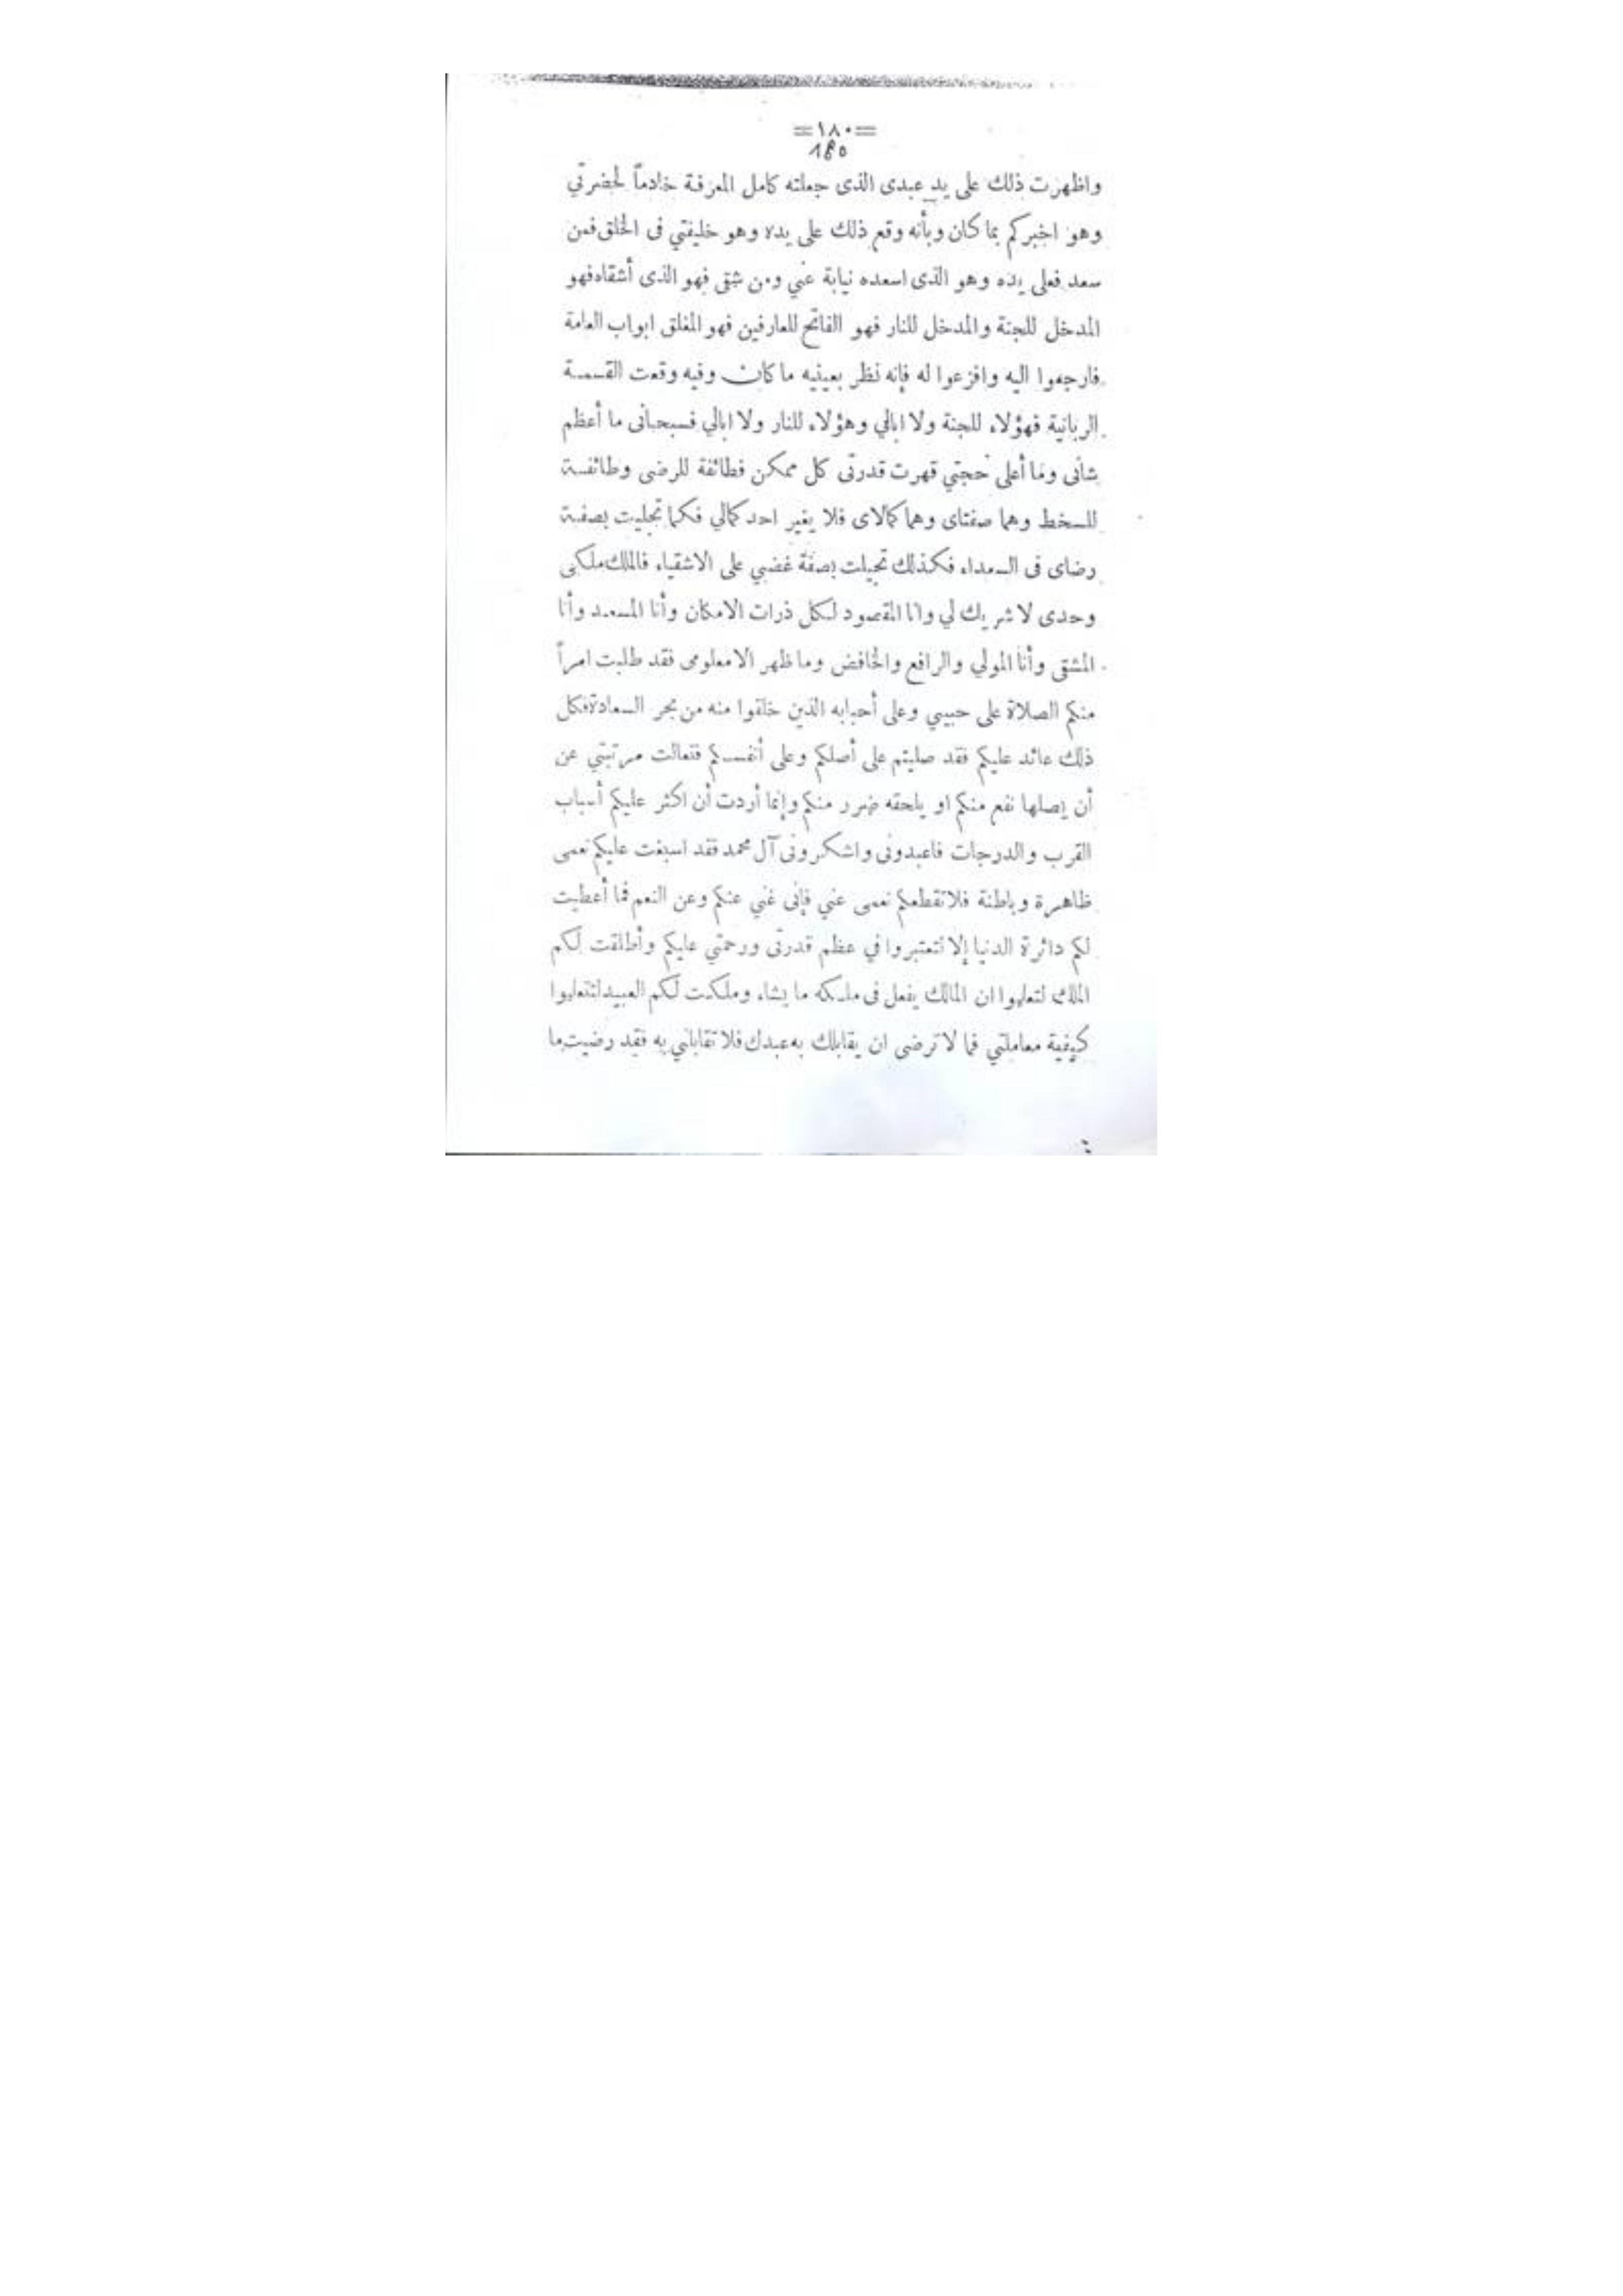 =١٨٠=
180
واظهرت ذلك على يد عبدى الذى جعلته كامل المعرفة خادماً لحضرتي
وهو اخبركم بما كان وبأنه وقع ذلك على يده وهو خليفتي فى الخلق فمن
سعد فعلى يده وهو الذى اسعده نيابة عني ومن شقى فهو الذى أشقاه فهو
المدخل للجنة والمدخل للنار فهو الفاتح للعارفين فهو المغلق ابواب العامة
فارجعوا اليه وافزعوا له فإنه نظر بعينيه ما كان وفيه وقعت القسمة
الربانية فهؤلاء للجنة ولا ابالي وهؤلاء للنار ولا ابالي فسبحانى ما أعظم
شانى وما أعلى حجتي قهرت قدرتى كل ممكن فطائفة للرضى وطائفة
للسخط وهما صفتاى وهما كمالاى فلا يغير احد كمالي فكما تجليت بصفة
رضاى فى السعداء فكذلك تجيلت بصفة غضبي على الاشقياء فالملك ملكى
وحدى لا شريك لي وانا المقصود لكل ذرات الامكان وأنا المسعد وأنا
المشقى وأنا المولي والرافع والخافض وما ظهر الا معلومى فقد طلبت امراً
منكم الصلاة على حبيبي وعلى أحبابه الذين خلقوا منه من بحر السعادة فكل
ذلك عائد عليكم فقد صليتم على أصلكم وعلى أنفسكم فتعالت مرتبتي عن
أن يصلها نفع منكم او يلحقه ضرر منكم وإنما أردت أن اكثر عليكم أسباب
القرب والدرجات فاعبدونى واشكرونى آل محمد فقد اسبغت عليكم نعمى
ظاهرة وباطنة فلا تقطعكم نعمى عني فإنى غني عنكم وعن النعم فما أعطيت
لكم دائرة الدنيا إلا لتعتبروا في عظم قدرتى ورحمتي عليكم وأطلقت لكم
الملك لتعلموا ان المالك يفعل فى ملكه ما يشاء وملكت لكم العبيد لتتعلموا
كيفية معاملتي فما لا ترضى ان يقابلك به عبدك فلا تقابلني به فقد رضيت ما